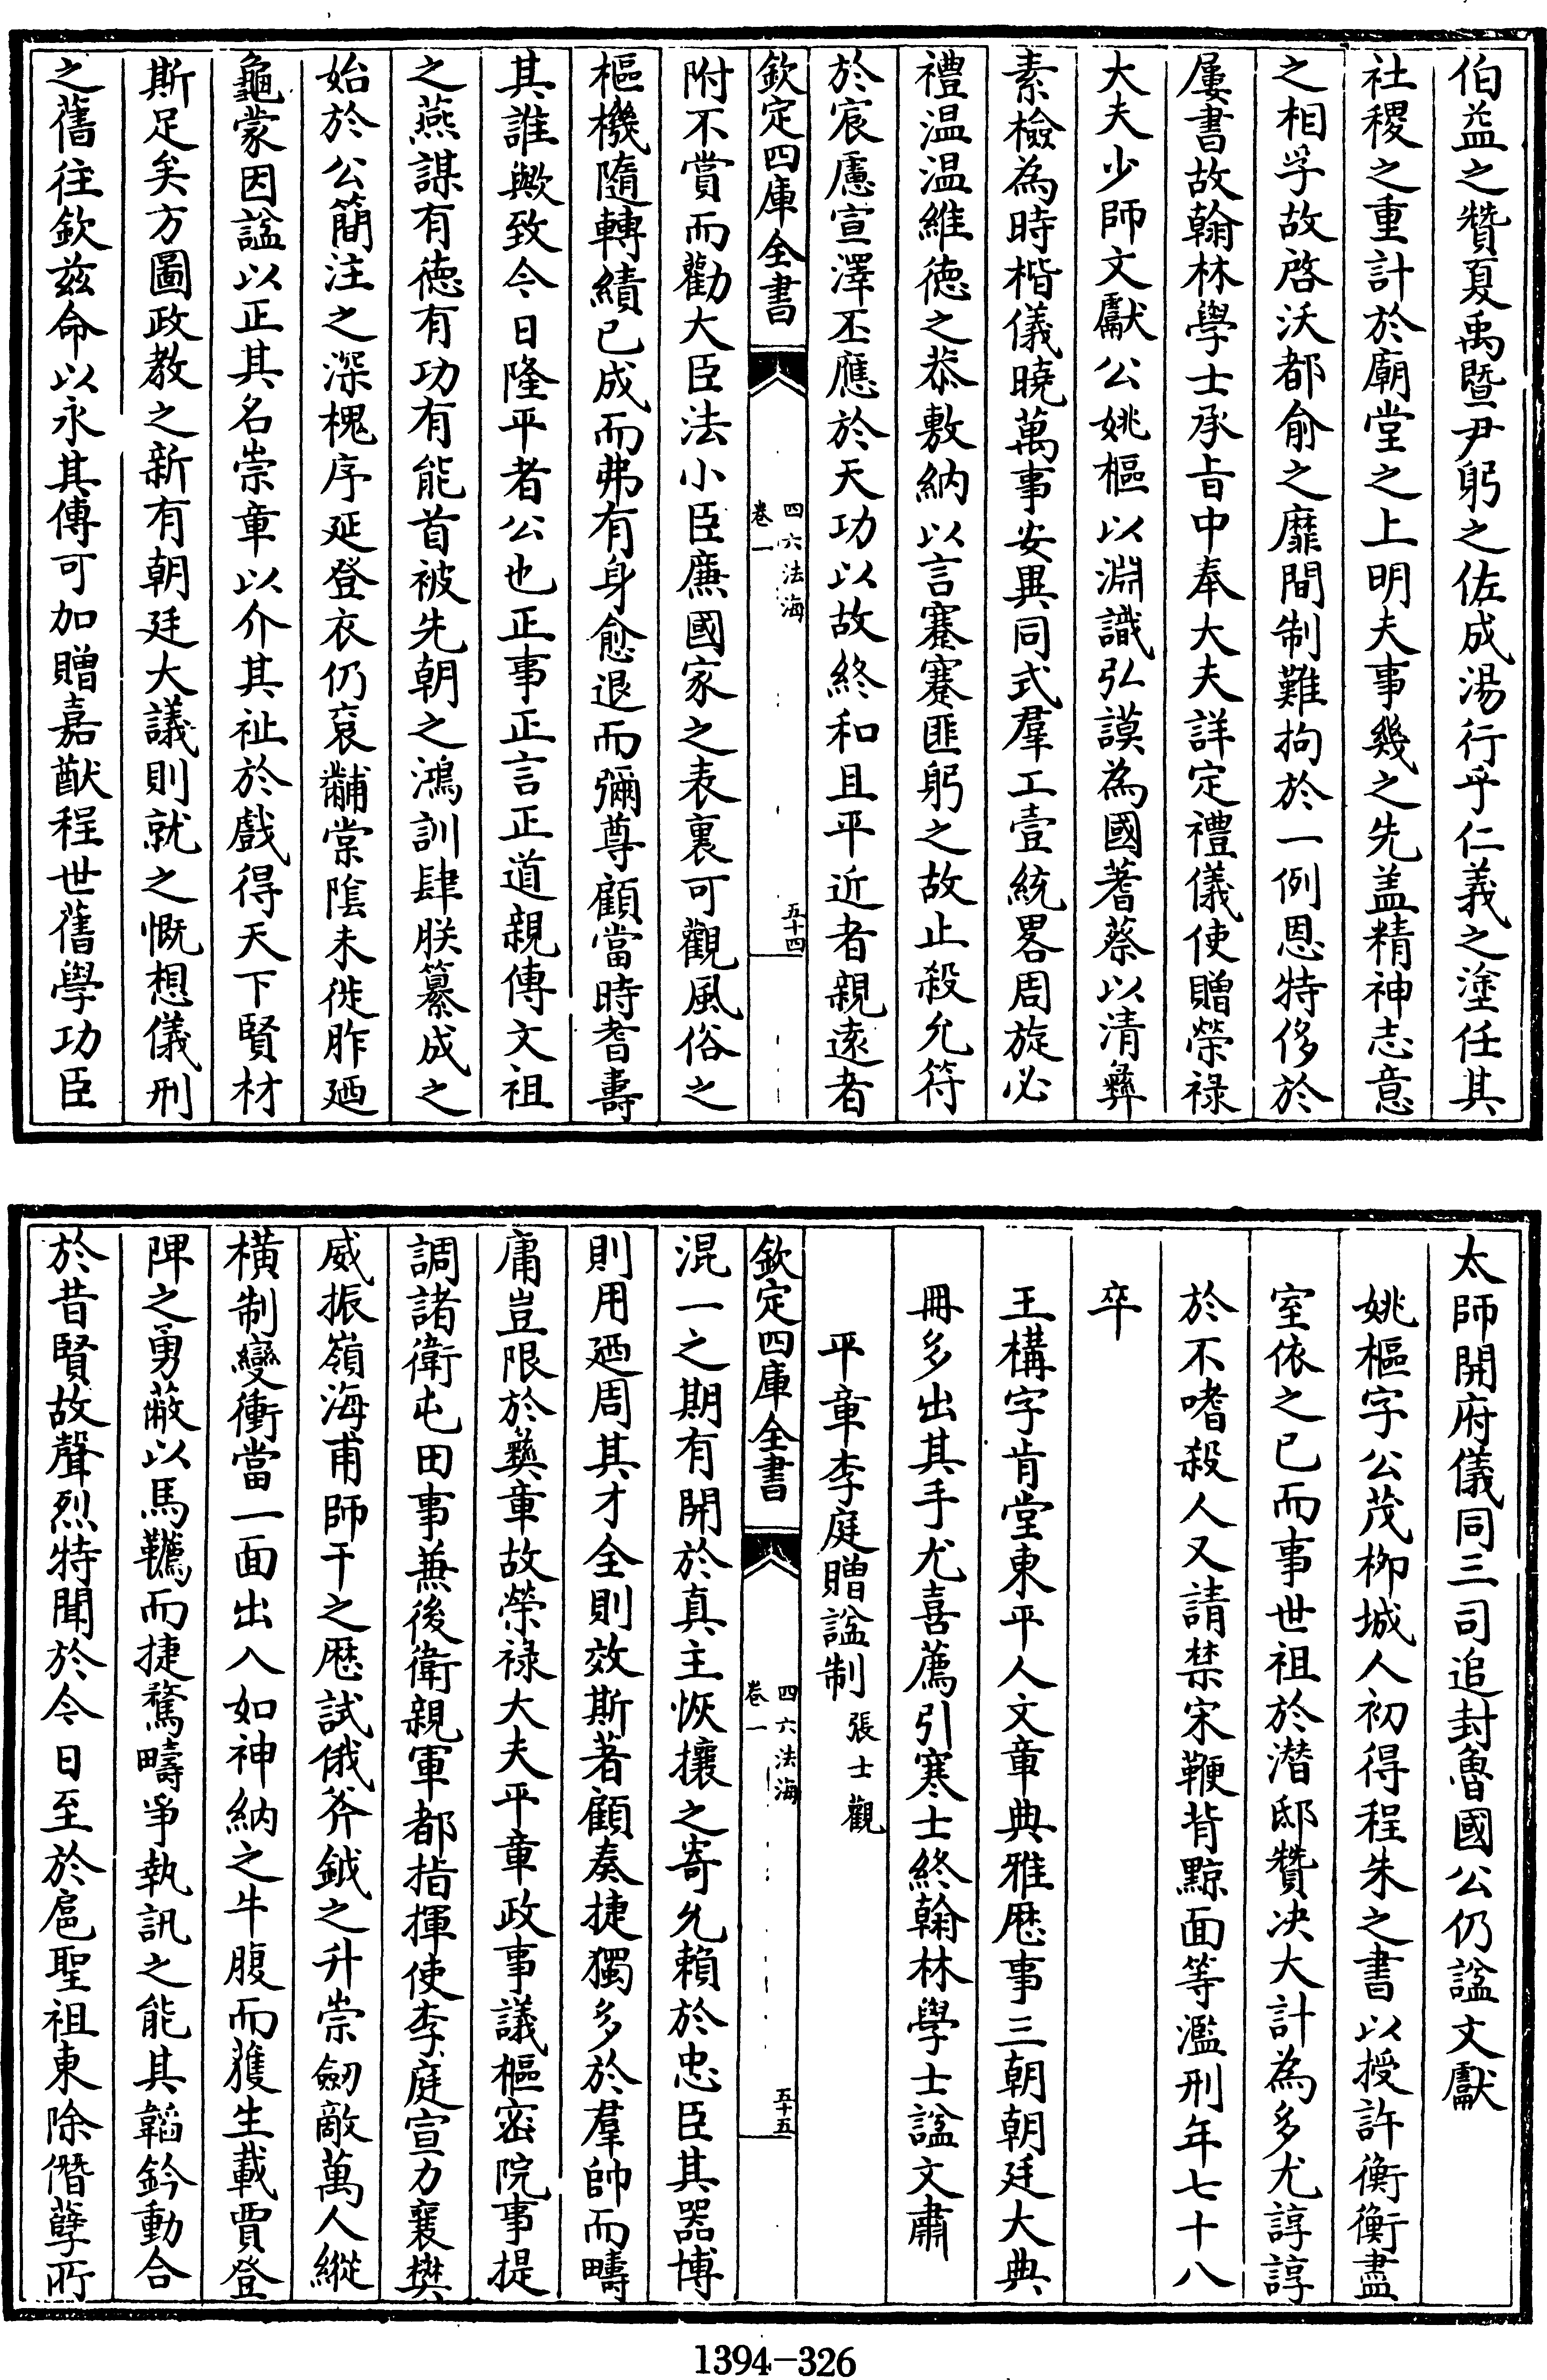 伯益之贊夏禹暨尹躬之佐成湯行乎仁義之塗任其
社稷之重計於廟堂之上明夫事幾之先盖精神志意
之相孚故啓沃都俞之靡間制難拘於一例恩特侈於
屢書故翰林學士承旨中奉大夫詳定禮儀使贈榮禄
大夫少師文獻公姚樞以淵識弘謨為國蓍蔡以清彝
素檢為時楷儀曉萬事安異同式羣工壹統畧周旋必
禮温温維徳之恭敷納以言蹇蹇匪躬之故止殺允符
於宸慮宣澤丕應於天功以故終和且平近者親遠者
欽定四庫全書
四六法海
卷一
五十四
附不賞而勸大臣法小臣亷國家之表裏可觀風俗之
樞機隨轉績已成而弗有身愈退而彌尊顧當時耆壽
其誰歟致今日隆平者公也正事正言正道親傳文祖
之燕謀有徳有功有能首被先朝之鴻訓肆朕纂成之
始於公簡注之深槐序延登衣仍衮黼棠隂未徙胙廼
龜蒙因諡以正其名崇章以介其祉於戲得天下賢材
斯足矣方圖政教之新有朝廷大議則就之慨想儀刑
之舊往欽兹命以永其傳可加贈嘉猷程世舊學功臣
太師開府儀同三司追封魯國公仍諡文獻
姚樞字公茂栁城人初得程朱之書以授許衡衡盡
室依之已而事世祖於潜邸贊决大計為多尤諄諄
於不嗜殺人又請禁宋鞭背黥面等濫刑年七十八
卒
王構字肯堂東平人文章典雅歴事三朝朝廷大典
冊多出其手尤喜薦引寒士終翰林學士諡文肅
平章李庭贈諡制 張士觀
欽定四庫全書
四六法海
卷一
五十五
混一之期有開於真主恢攘之寄允賴於忠臣其器博
則用廼周其才全則效斯著顧奏捷獨多於羣帥而疇
庸豈限於彝章故榮禄大夫平章政事議樞密院事提
調諸衛屯田事兼後衛親軍都指揮使李庭宣力襄樊
威振嶺海甫師干之歴試俄斧鉞之升崇劒敵萬人縱
横制變衝當一面出入如神納之牛腹而獲生載賈登
陴之勇蔽以馬韉而捷騖疇爭執訊之能其韜鈐動合
於昔賢故聲烈特聞於今日至於扈聖祖東除僭孽所
1394-326